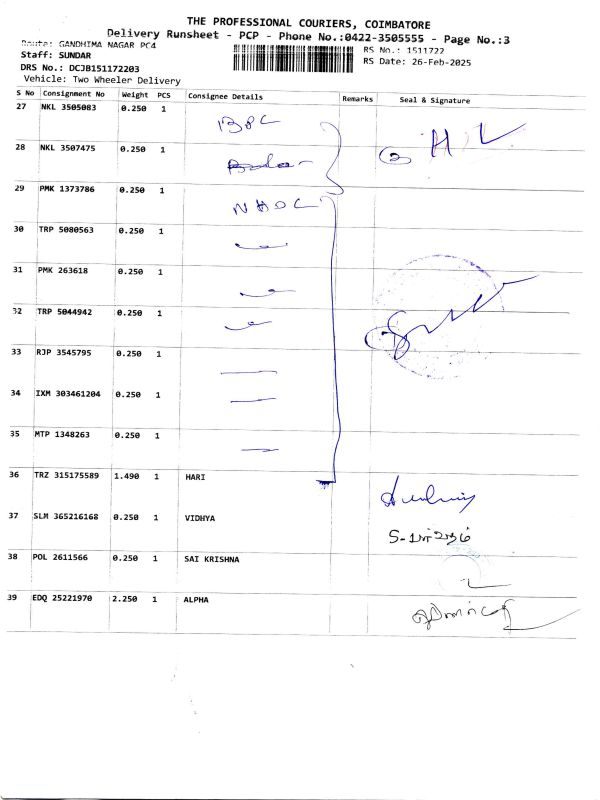 THE PROFESSIONAL COURIERS, COIMBATORE
Delivery Runsheet - PCP - Phone No.:0422-3505555 - Page No.:3
Route: GANDHIMA NAGAR PC4
RS No.: 1511722
Staff: SUNDAR
RS Date: 26-Feb-2025
DRS No.: DCJB151172203
Vehicle: Two Wheeler Delivery
S No Consignment No Weight PCS Consignee Details Remarks Seal & Signature
27 NKL 3505083 0.250 1
28 NKL 3507475 0.250 1
29 PMK 1373786 0.250 1
30 TRP 5080563 0.250 1
31 PMK 263618 0.250 1
32 TRP 5044942 0.250 1
33 RJP 3545795 0.250 1
34 IXM 303461204 0.250 1
35 MTP 1348263 0.250 1
36 TRZ 315175589 1.490 1 HARI
37 SLM 365216168 0.250 1 VIDHYA
38 POL 2611566 0.250 1 SAI KRISHNA
39 EDQ 25221970 2.250 1 ALPHA